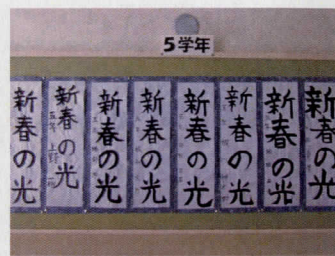 5学年
新春の光
新春の光
新春の光
新春の光
新春の光
新春の光
新春の光
新春の光